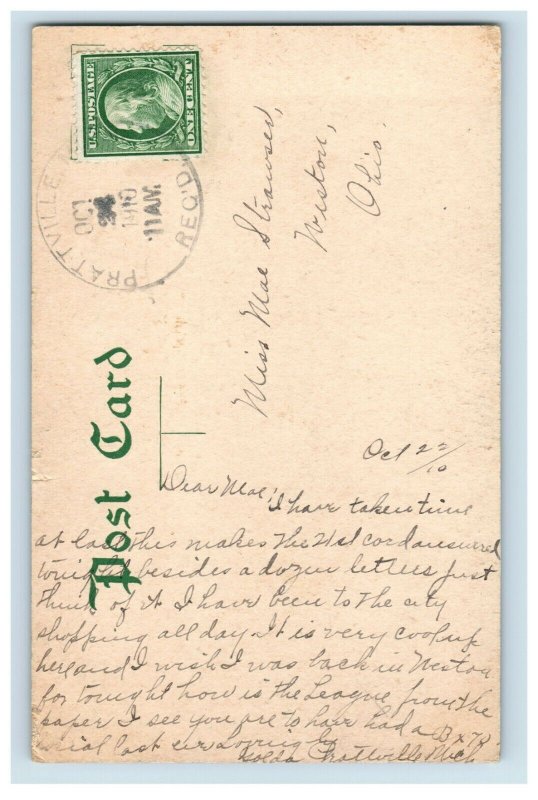 U.S. POSTAGE
ONE CENT
PRATTVILLE
OCT
1910
11 AM
REC'D
Post Card
Miss Mae Strawser,
Weston,
Ohio.
Oct 22/10
Dear Mae! I have taken time
at last this makes the 21st card answered
tonight besides a dozen letters just
think of it I have been to the city
shopping all day. It is very cool up
here and I wish I was back in Weston
for tonight how is the League from the
paper I see you are to have had a
social last eve Lovingly
Golda Prattville Mich
Bx 78